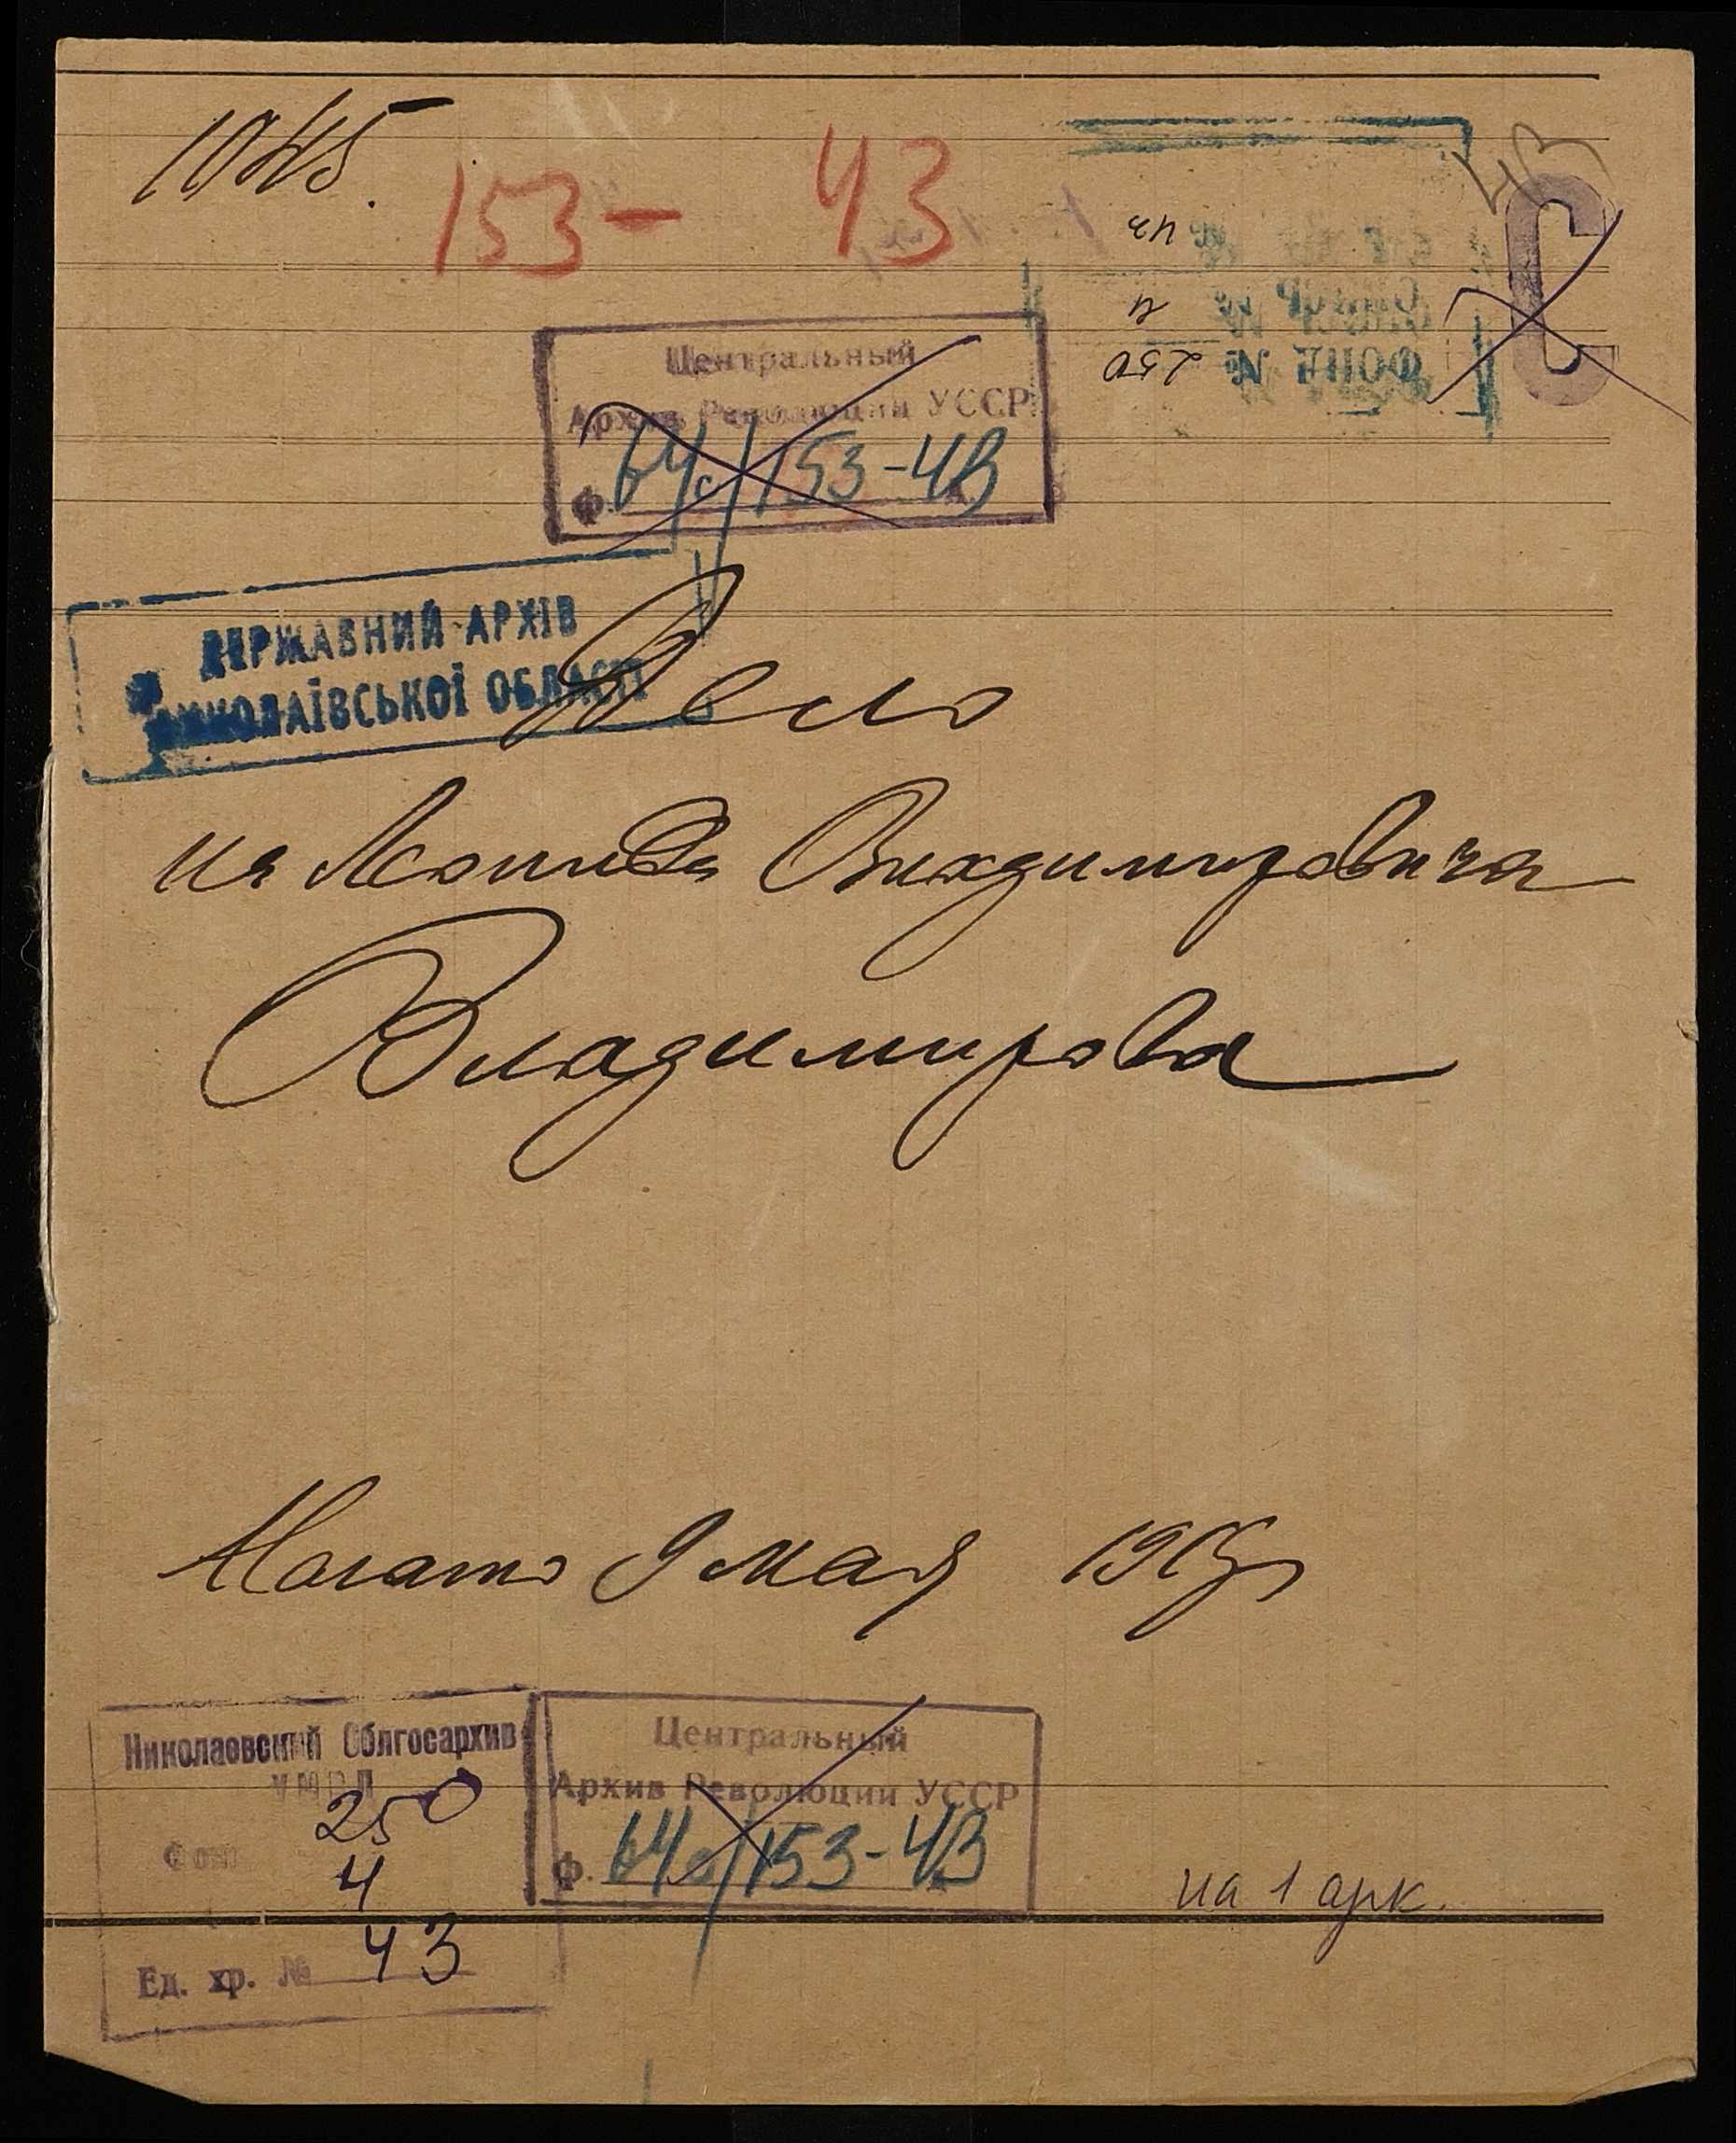 153- 43
43
43
Опись № 4
Фонд № 250
С
Центральный
Архив Революции УССР
Ф. 64с/153-43
ДЕРЖАВНИЙ АРХІВ
МИКОЛАЇВСЬКОЇ ОБЛАСТІ
Дело
на Леонида Владимировича
Владимирова
Начато 9 мая
Николаевский Облгосархив
УМВД
250
Фонд
4
Ед. хр. № 43
Центральный
Архив Революции УССР
Ф. 64с/153-43
на 1 арк.